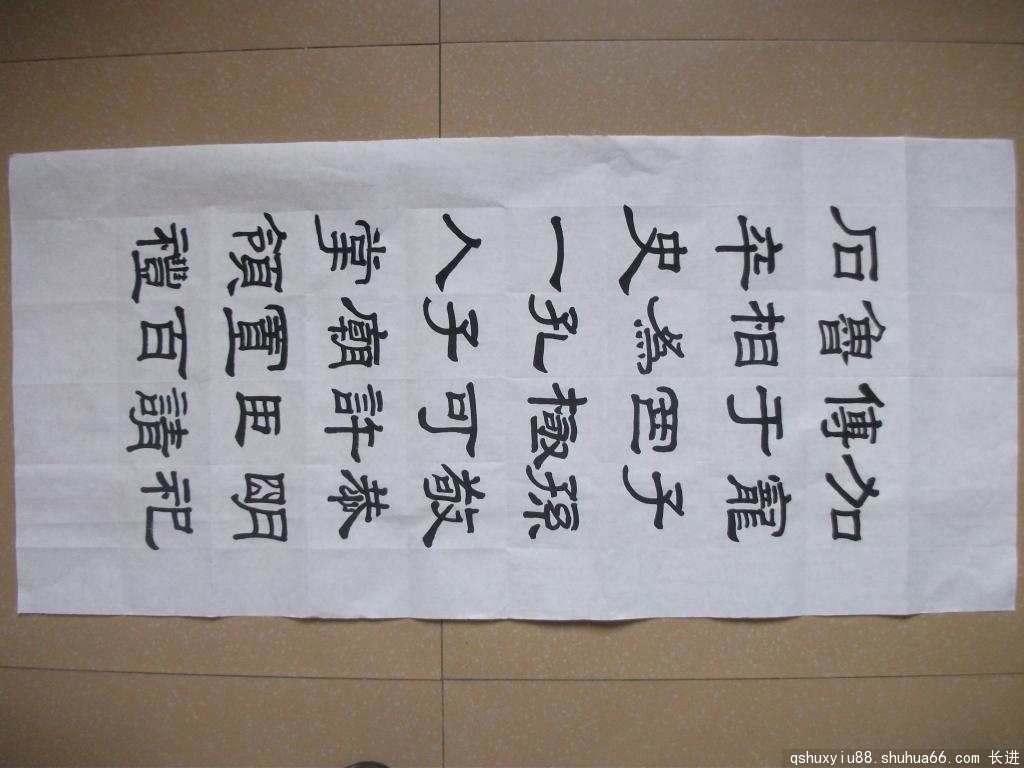 石魯傅加
卒相于寵
史為子
一孔孫
人子可敬
掌廟許恭
領置臣明
禮百請祀
qshuxyiu88.shuhua66.com 长进